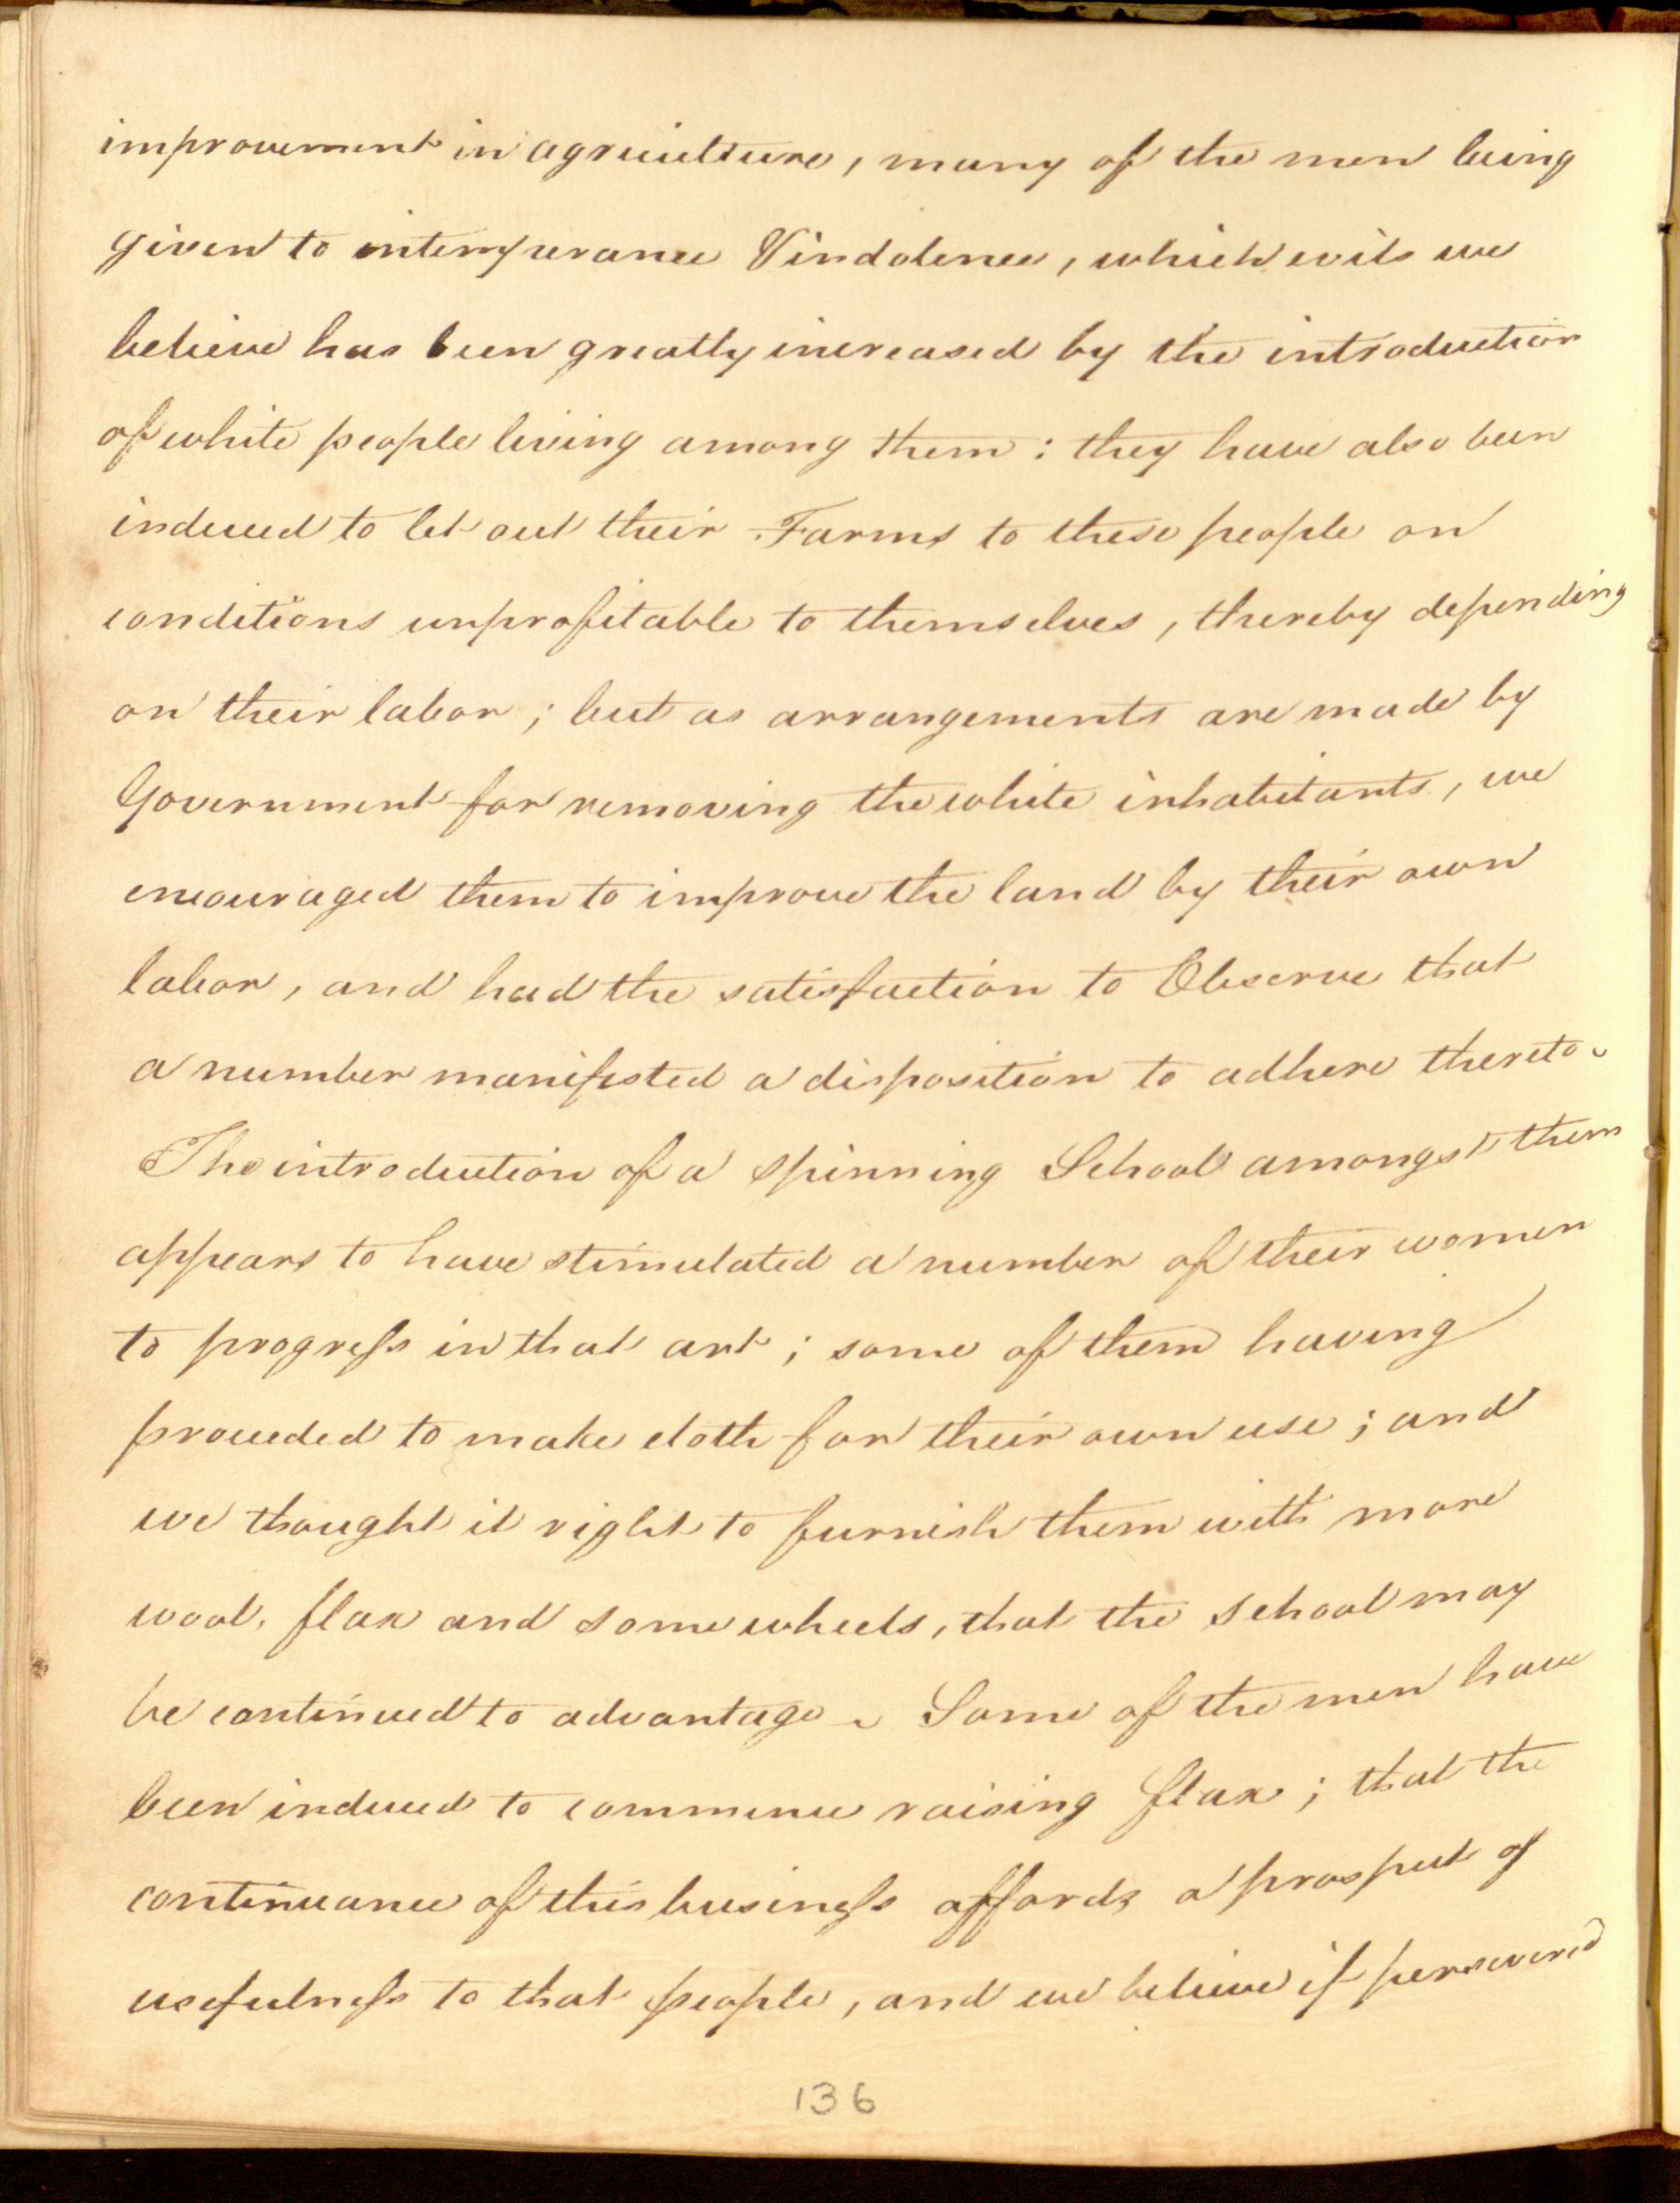 improvement in agriculture, many of the men being
given to intemperance & indolence, which evils we
believe has been greatly increased by the introduction
of white people living among them : they have also been
induced to let out their Farms to these people on
conditions unprofitable to themselves, thereby depending
on their labor ; but as arrangements are made by
Government for removing the white inhabitants, we
encouraged them to improve the land by their own
labor, and had the satisfaction to Observe that
a number manifested a disposition to adhere thereto.
The introduction of a spinning School amongst them
appears to have stimulated a number of their women
to progress in that art ; some of them having
proceeded to make cloth for their own use ; and
we thought it right to furnish them with more
wool, flax and some wheels, that the school may
be continued to advantage. Some of the men have
been induced to commence raising flax ; that the
continuance of this business affords a prospect of
usefulness to that people, and we believe if persevered
136